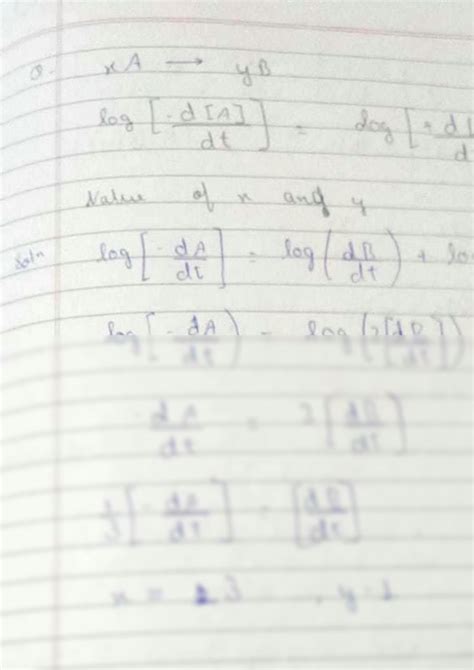 Q. xA → yB
log [-d[A]/dt] = log [+d
Value of x and y
Soln log [-dA/dt] = log (dB/dt) + lo
log [-dA/dt) = log (
dA/dt = [dB/dt]
[-dA/dt] = [dB/dt]
x = 3, y = 1